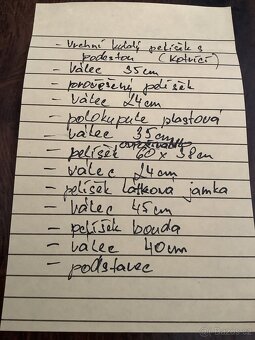 - vrchní kulatý pelíšek s
podestou (kolíčí)
- válec 35cm
- prověšený pelíšek
- válec 24cm
- polokupule plastová
- válec 35cm
- pelíšek 60 x 38cm
- válec 24cm
- pelíšek látková jamka
- válec 45cm
- pelíšek bouda
- válec 40cm
- podstavec